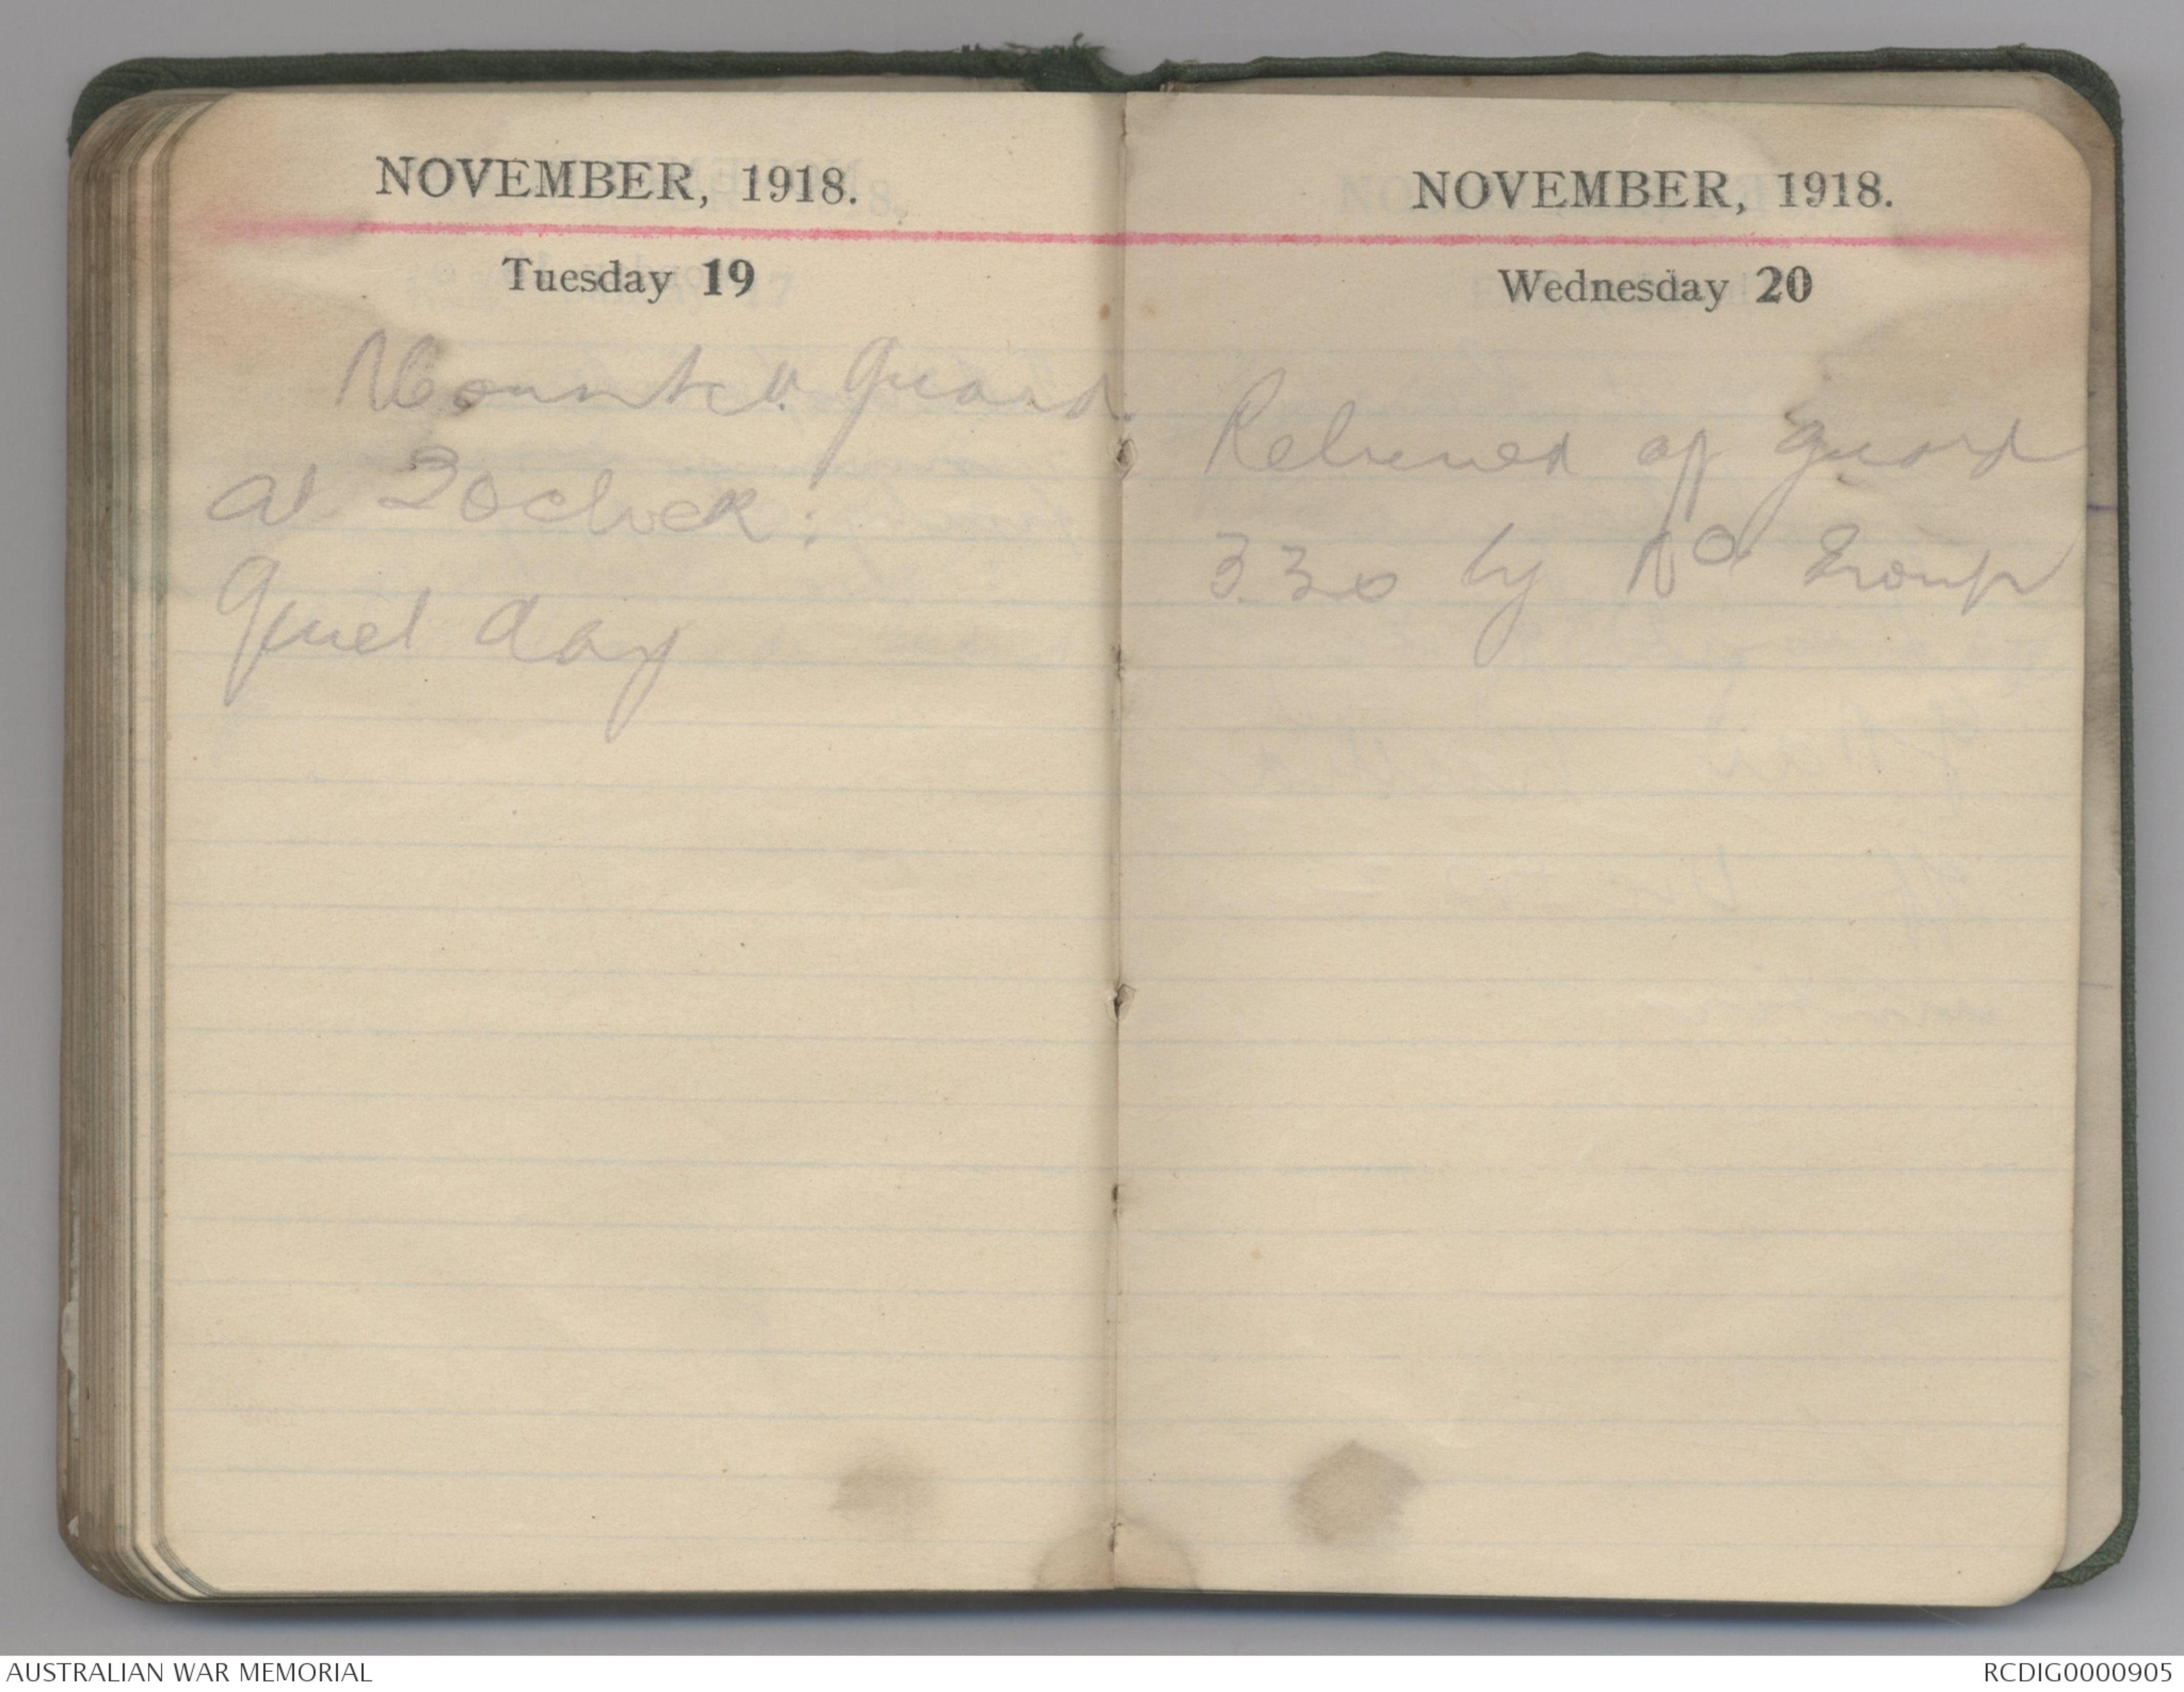 NOVEMBER, 1918.
Tuesday 19
Mounted Guard
at 3oclock.
Quiet day
NOVEMBER, 1918.
Wednesday 20
Relieved of guard
3.30 by Troup
AUSTRALIAN WAR MEMORIAL
RCDIG0000905